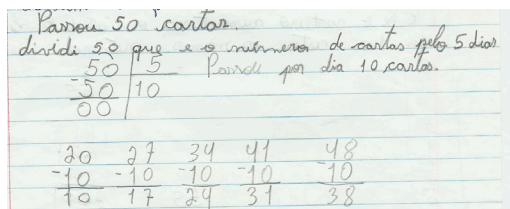 Passou 50 cartas.
dividi 50 que e o número de cartas pelo 5 dias
50 | 5 Passou por dia 10 cartas.
-50 | 10
00
20 27 34 41 48
-10 -10 -10 -10 -10
10 17 24 31 38